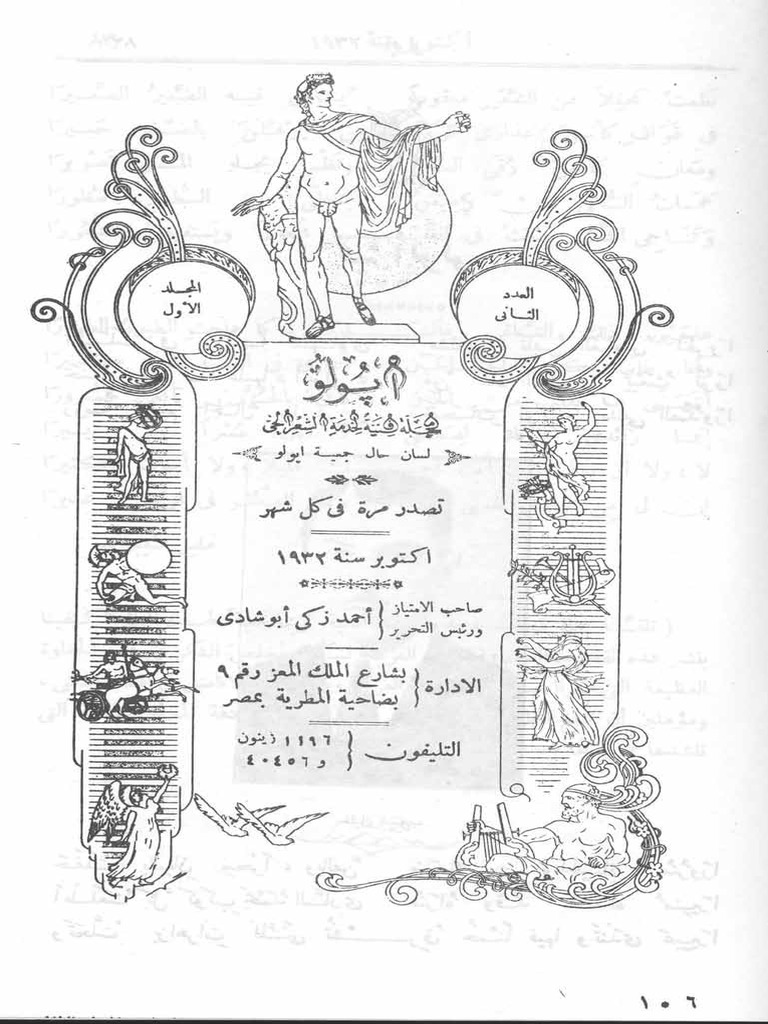 المجلد
الأول
العدد
الثانى
أپولُّو
مجلة فنية لخدمة الشعر الحى
لسان حال جمعية ابولو
تصدر مرة فى كل شهر
اكتوبر سنة ١٩٣٢
صاحب الامتياز
ورئيس التحرير
أحمد زكى أبوشادى
الادارة
بشارع الملك المعز رقم ٩
بضاحية المطرية بمصر
التليفون
١١٩٦ زيتون
و ٤٠٤٥٦
١٠٦